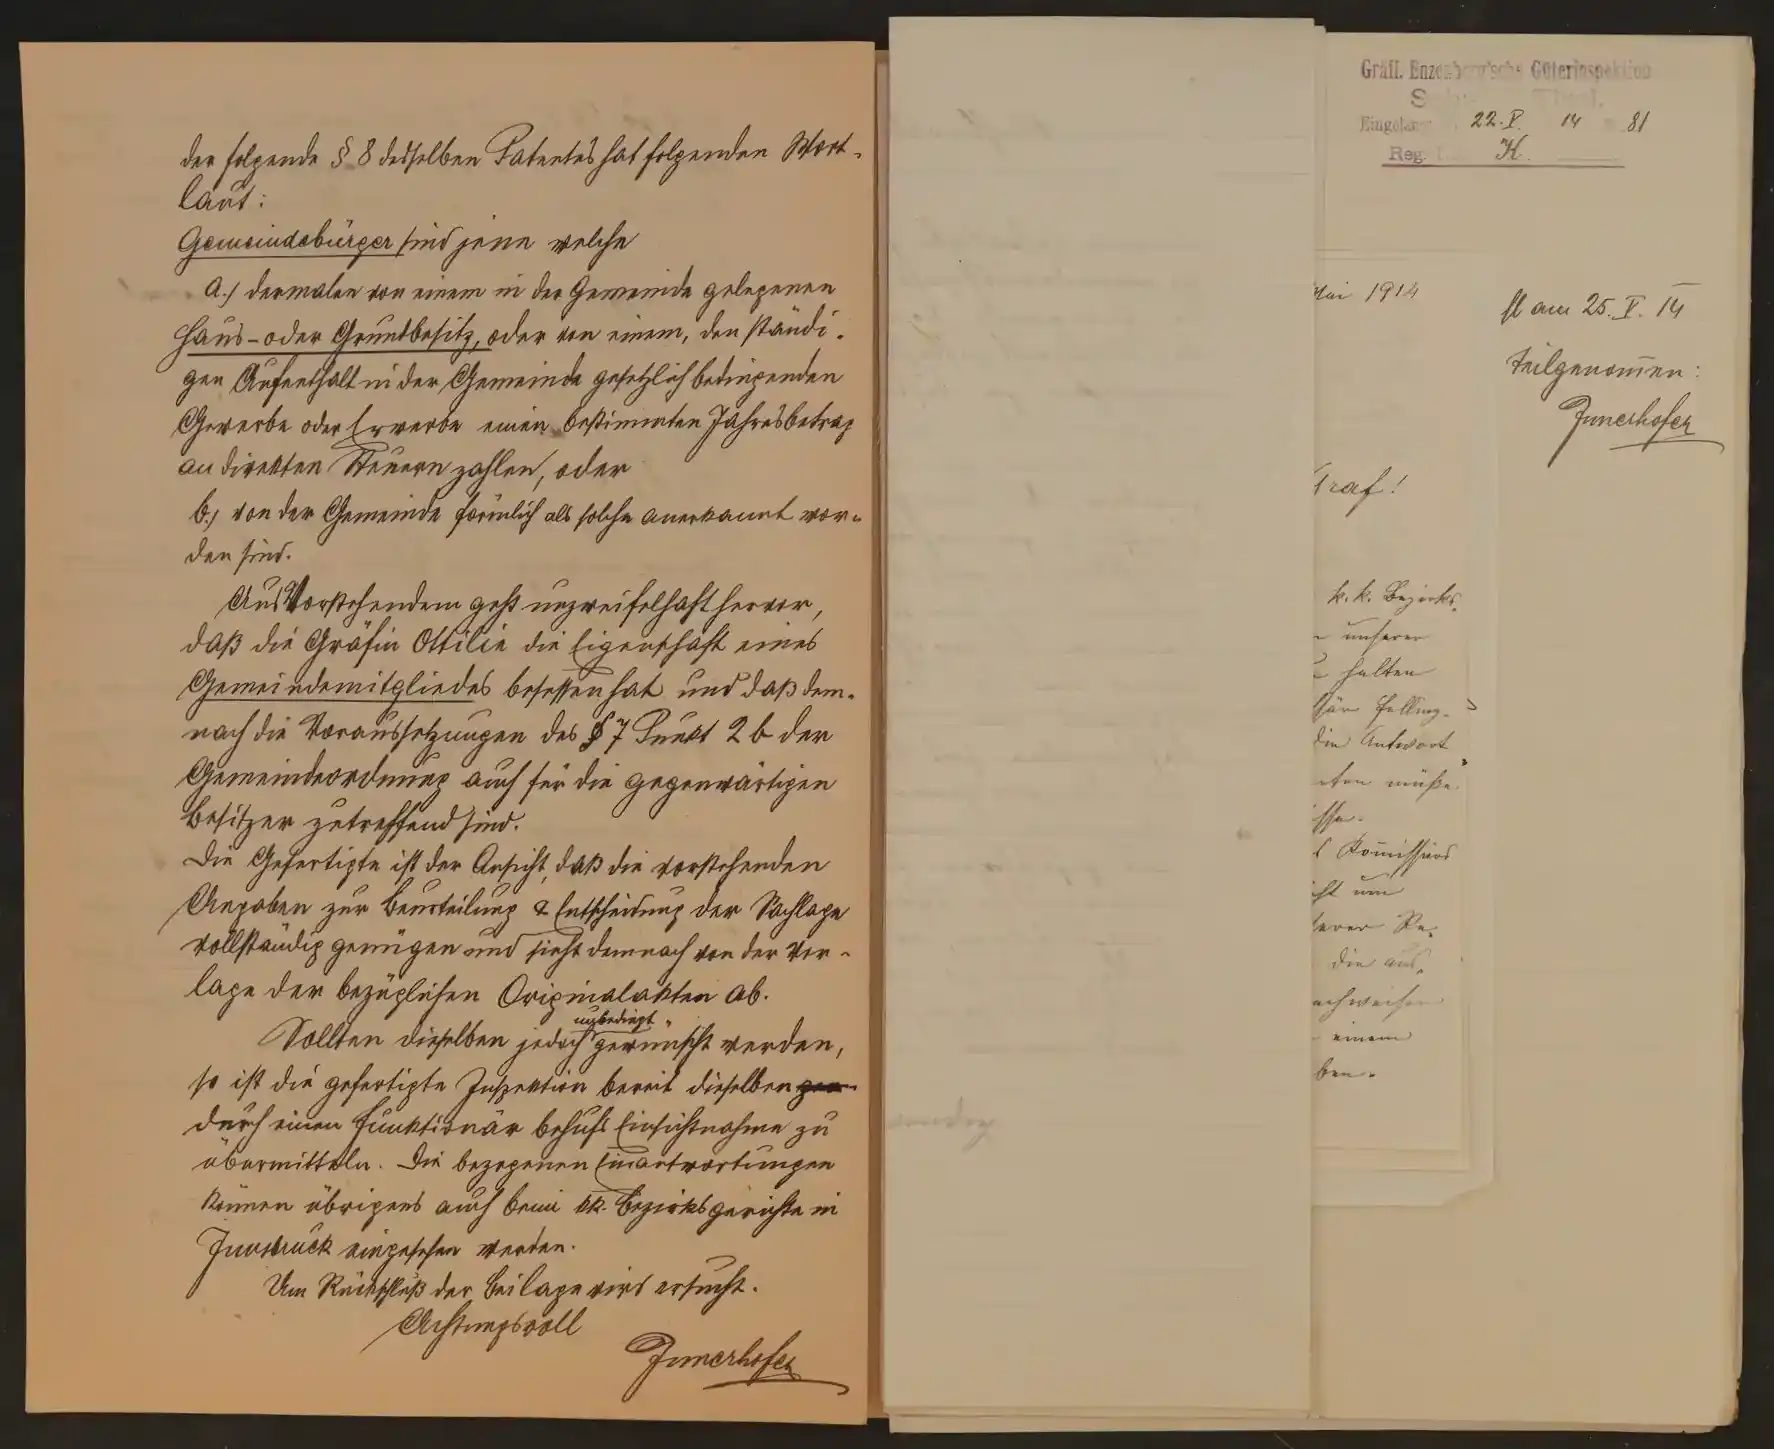 der folgende § 8 desselben Patentes hat folgenden Wort-
laut:
Gemeindebürger sind jene welche
a.) dermalen von einem in der Gemeinde gelegenen
Haus- oder Grundbesitz, oder von einem, den ständi-
gen Aufenthalt in der Gemeinde gesetzlich bedingenden
Gewerbe oder Erwerbe einen bestimmten Jahresbetrag
an direkten Steuern zahlen, oder
b.) von der Gemeinde förmlich als solche anerkannt wor-
den sind.
Aus Vorstehendem geht unzweifelhaft hervor,
daß die Gräfin Ottilie die Eigenschaft eines
Gemeindemitgliedes besessen hat und daß dem-
nach die Voraussetzungen des § 7 Punkt 2 b der
Gemeindeordnung auch für die gegenwärtigen
Besitzer zutreffend sind.
Die Gefertigte ist der Ansicht, daß die vorstehenden
Angaben zur Beurteilung & Entscheidung der Sachlage
vollständig genügen und sieht demnach von der Vor-
lage der bezüglichen Originalakten ab.
Sollten dieselben jedoch unbedingt gewünscht werden,
so ist die gefertigte Inspektion bereit dieselben
durch einen Funktionär behufs Einsichtnahme zu
übermitteln. Die bezogenen Einantwortungen
können übrigens auch beim kk. Bezirksgerichte in
Innsbruck eingesehen werden.
Um Rückschluß der Beilage wird ersucht.
Achtungsvoll
Innerhofer
Gräfl. Enzenberg'sche Güterinspektion
Eingelangt 22. V. 14 81
Reg. K.
Mai 1914
am 25. V. 14
teilgenommen:
Innerhofer
Graf!
k. k. Bezirks-
unserer
halten
die Antwort
müße
Kommissärs
um
Re-
die aus-
einem
ben.